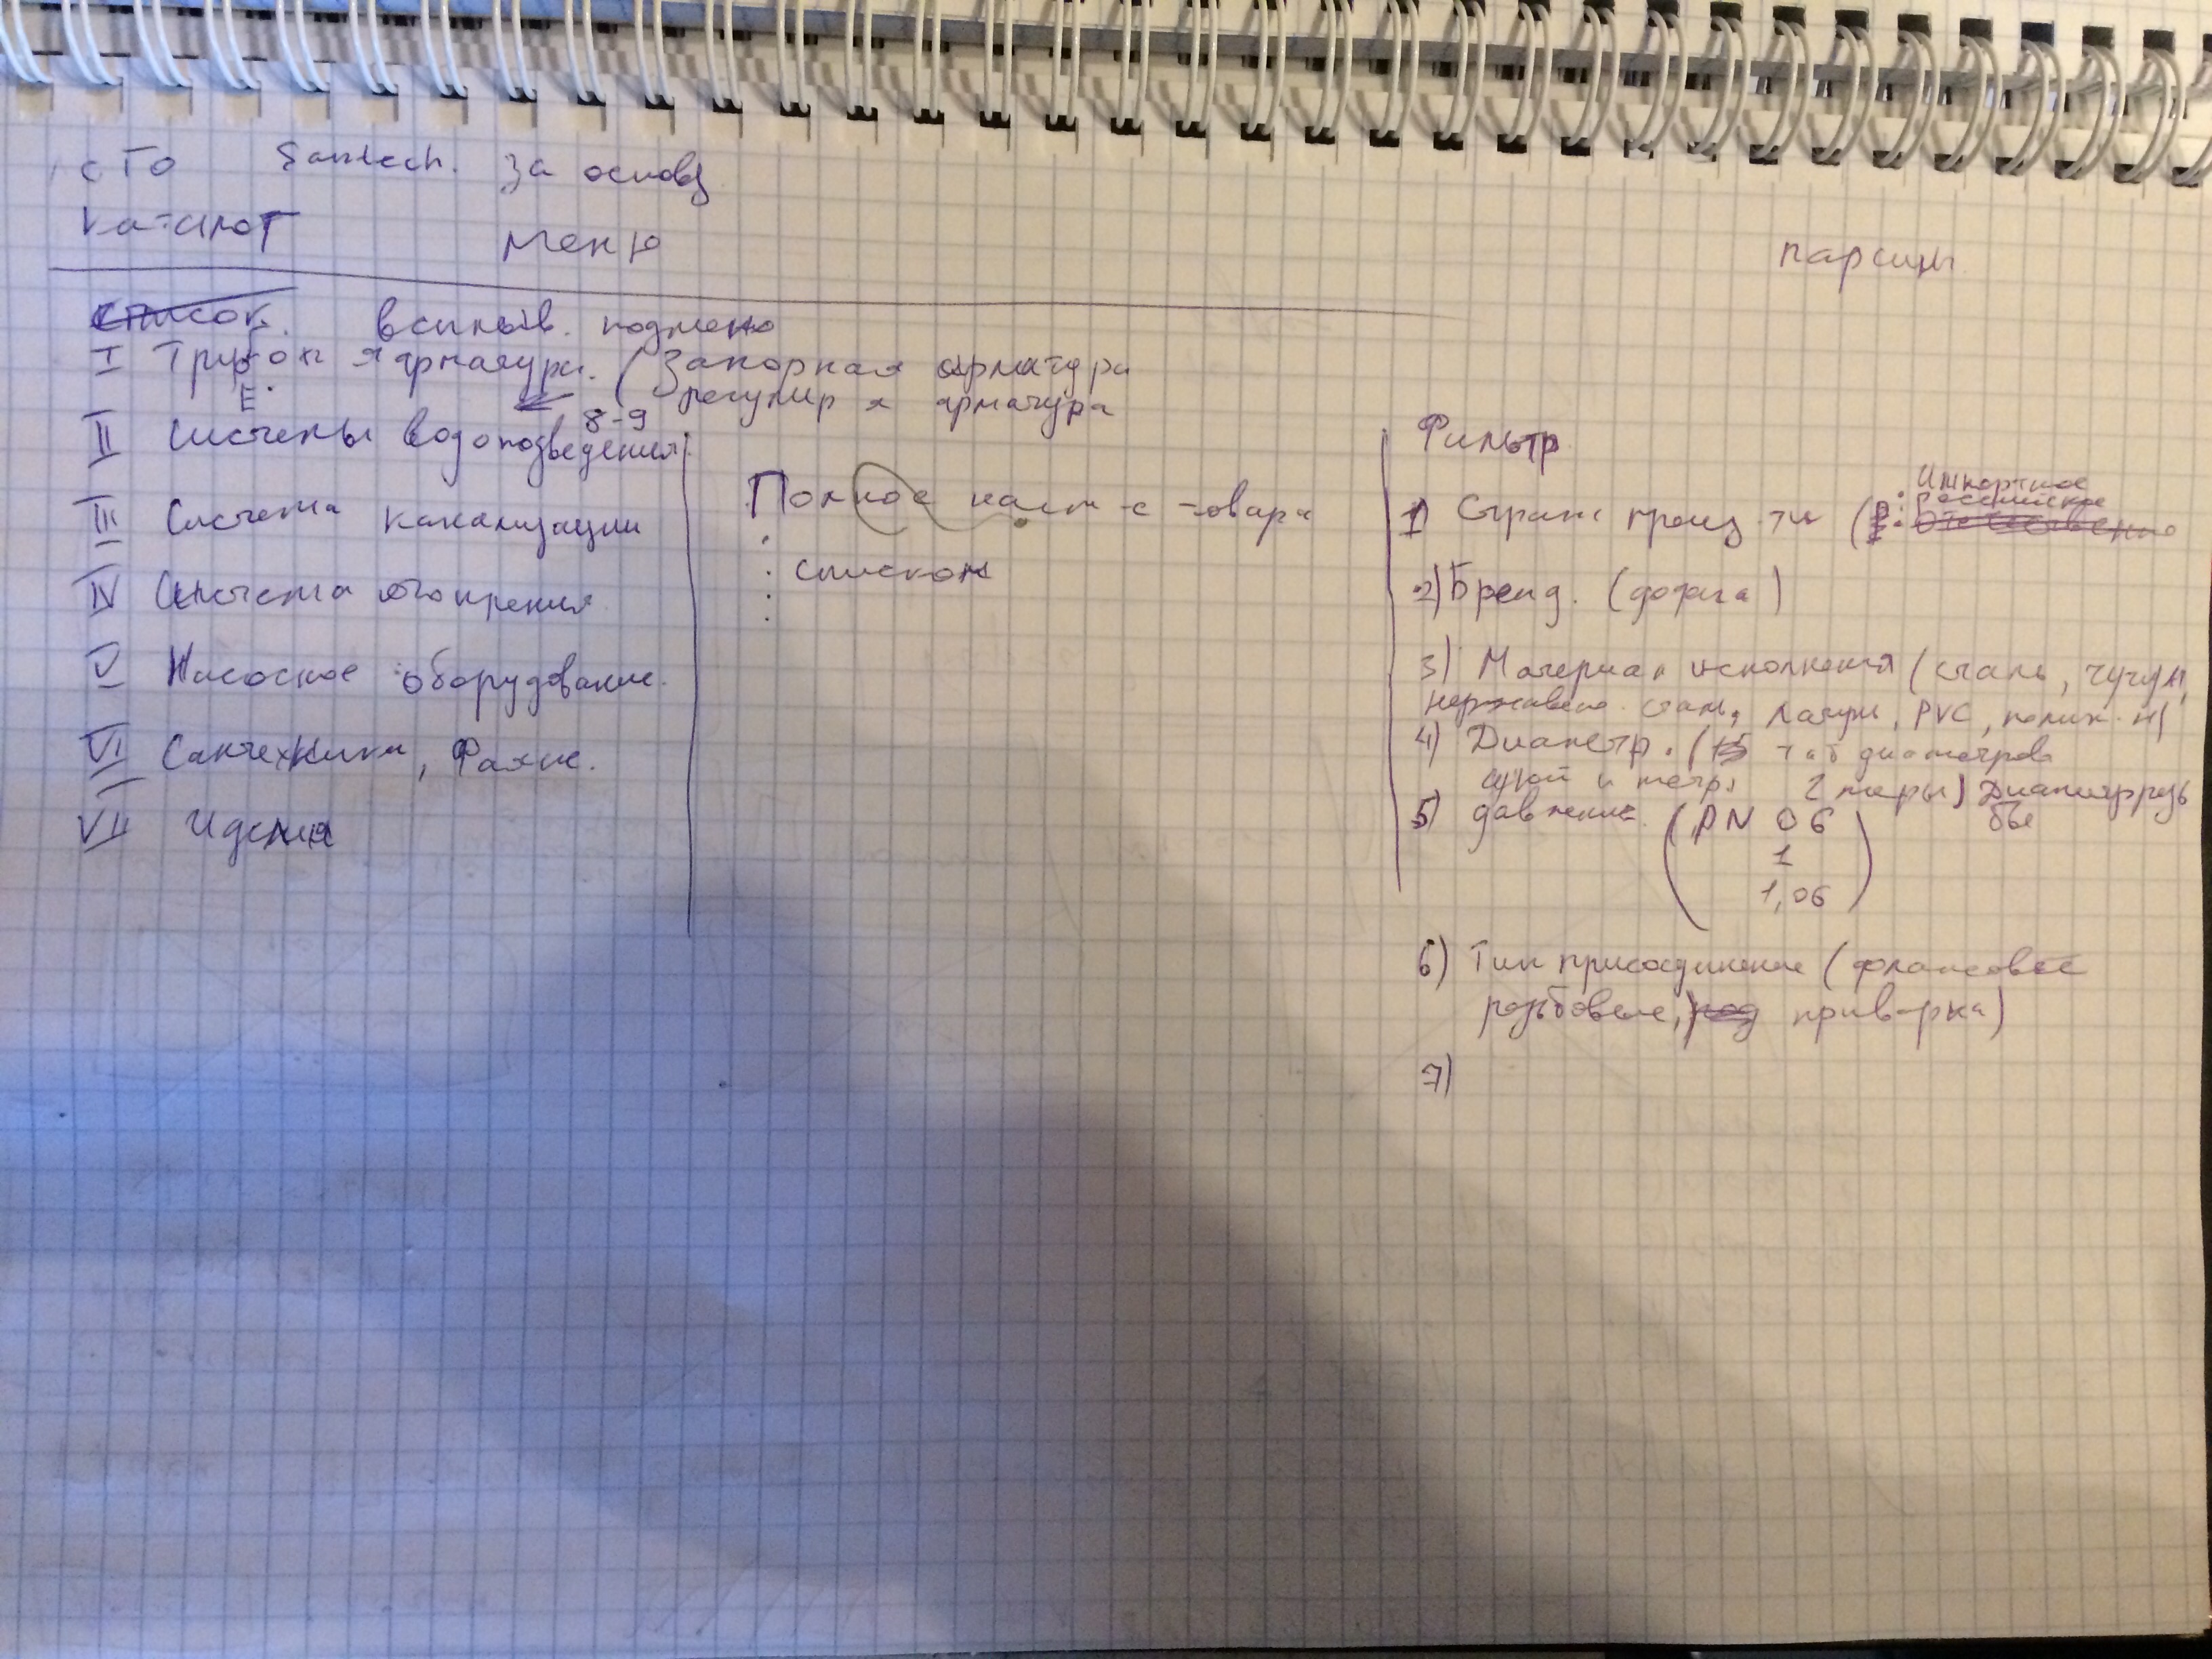 сто Santech. за основу
каталог меню
парсинг
список. всплыв. подменю
I Трубоп я арматура. (Запорная арматура
регулир я арматура
II Системы водоподведения
8-9
III Система канализации
IV Система отопления
V Насосное оборудование.
VI Сантехника, Фаянс.
VII
Полное наим-е товара
списком
Фильтр
1) Страна произ-ти (
Импортное
Российское
Отечественно
2) Бренд. (
3) Материал исполнения (сталь, чугун,
нержавею. сталь, латунь, PVC,
4) Диаметр. (15 таб диаметров
2 меры) Диаметр резь
бы
5) давление. (PN 06
1
1,06)
6) Тип присоединение (фланцовое
резьбовые, под приварка)
7)